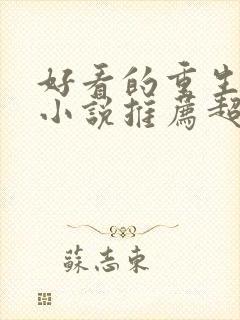 好看的重生
小說推薦超
蘇志東